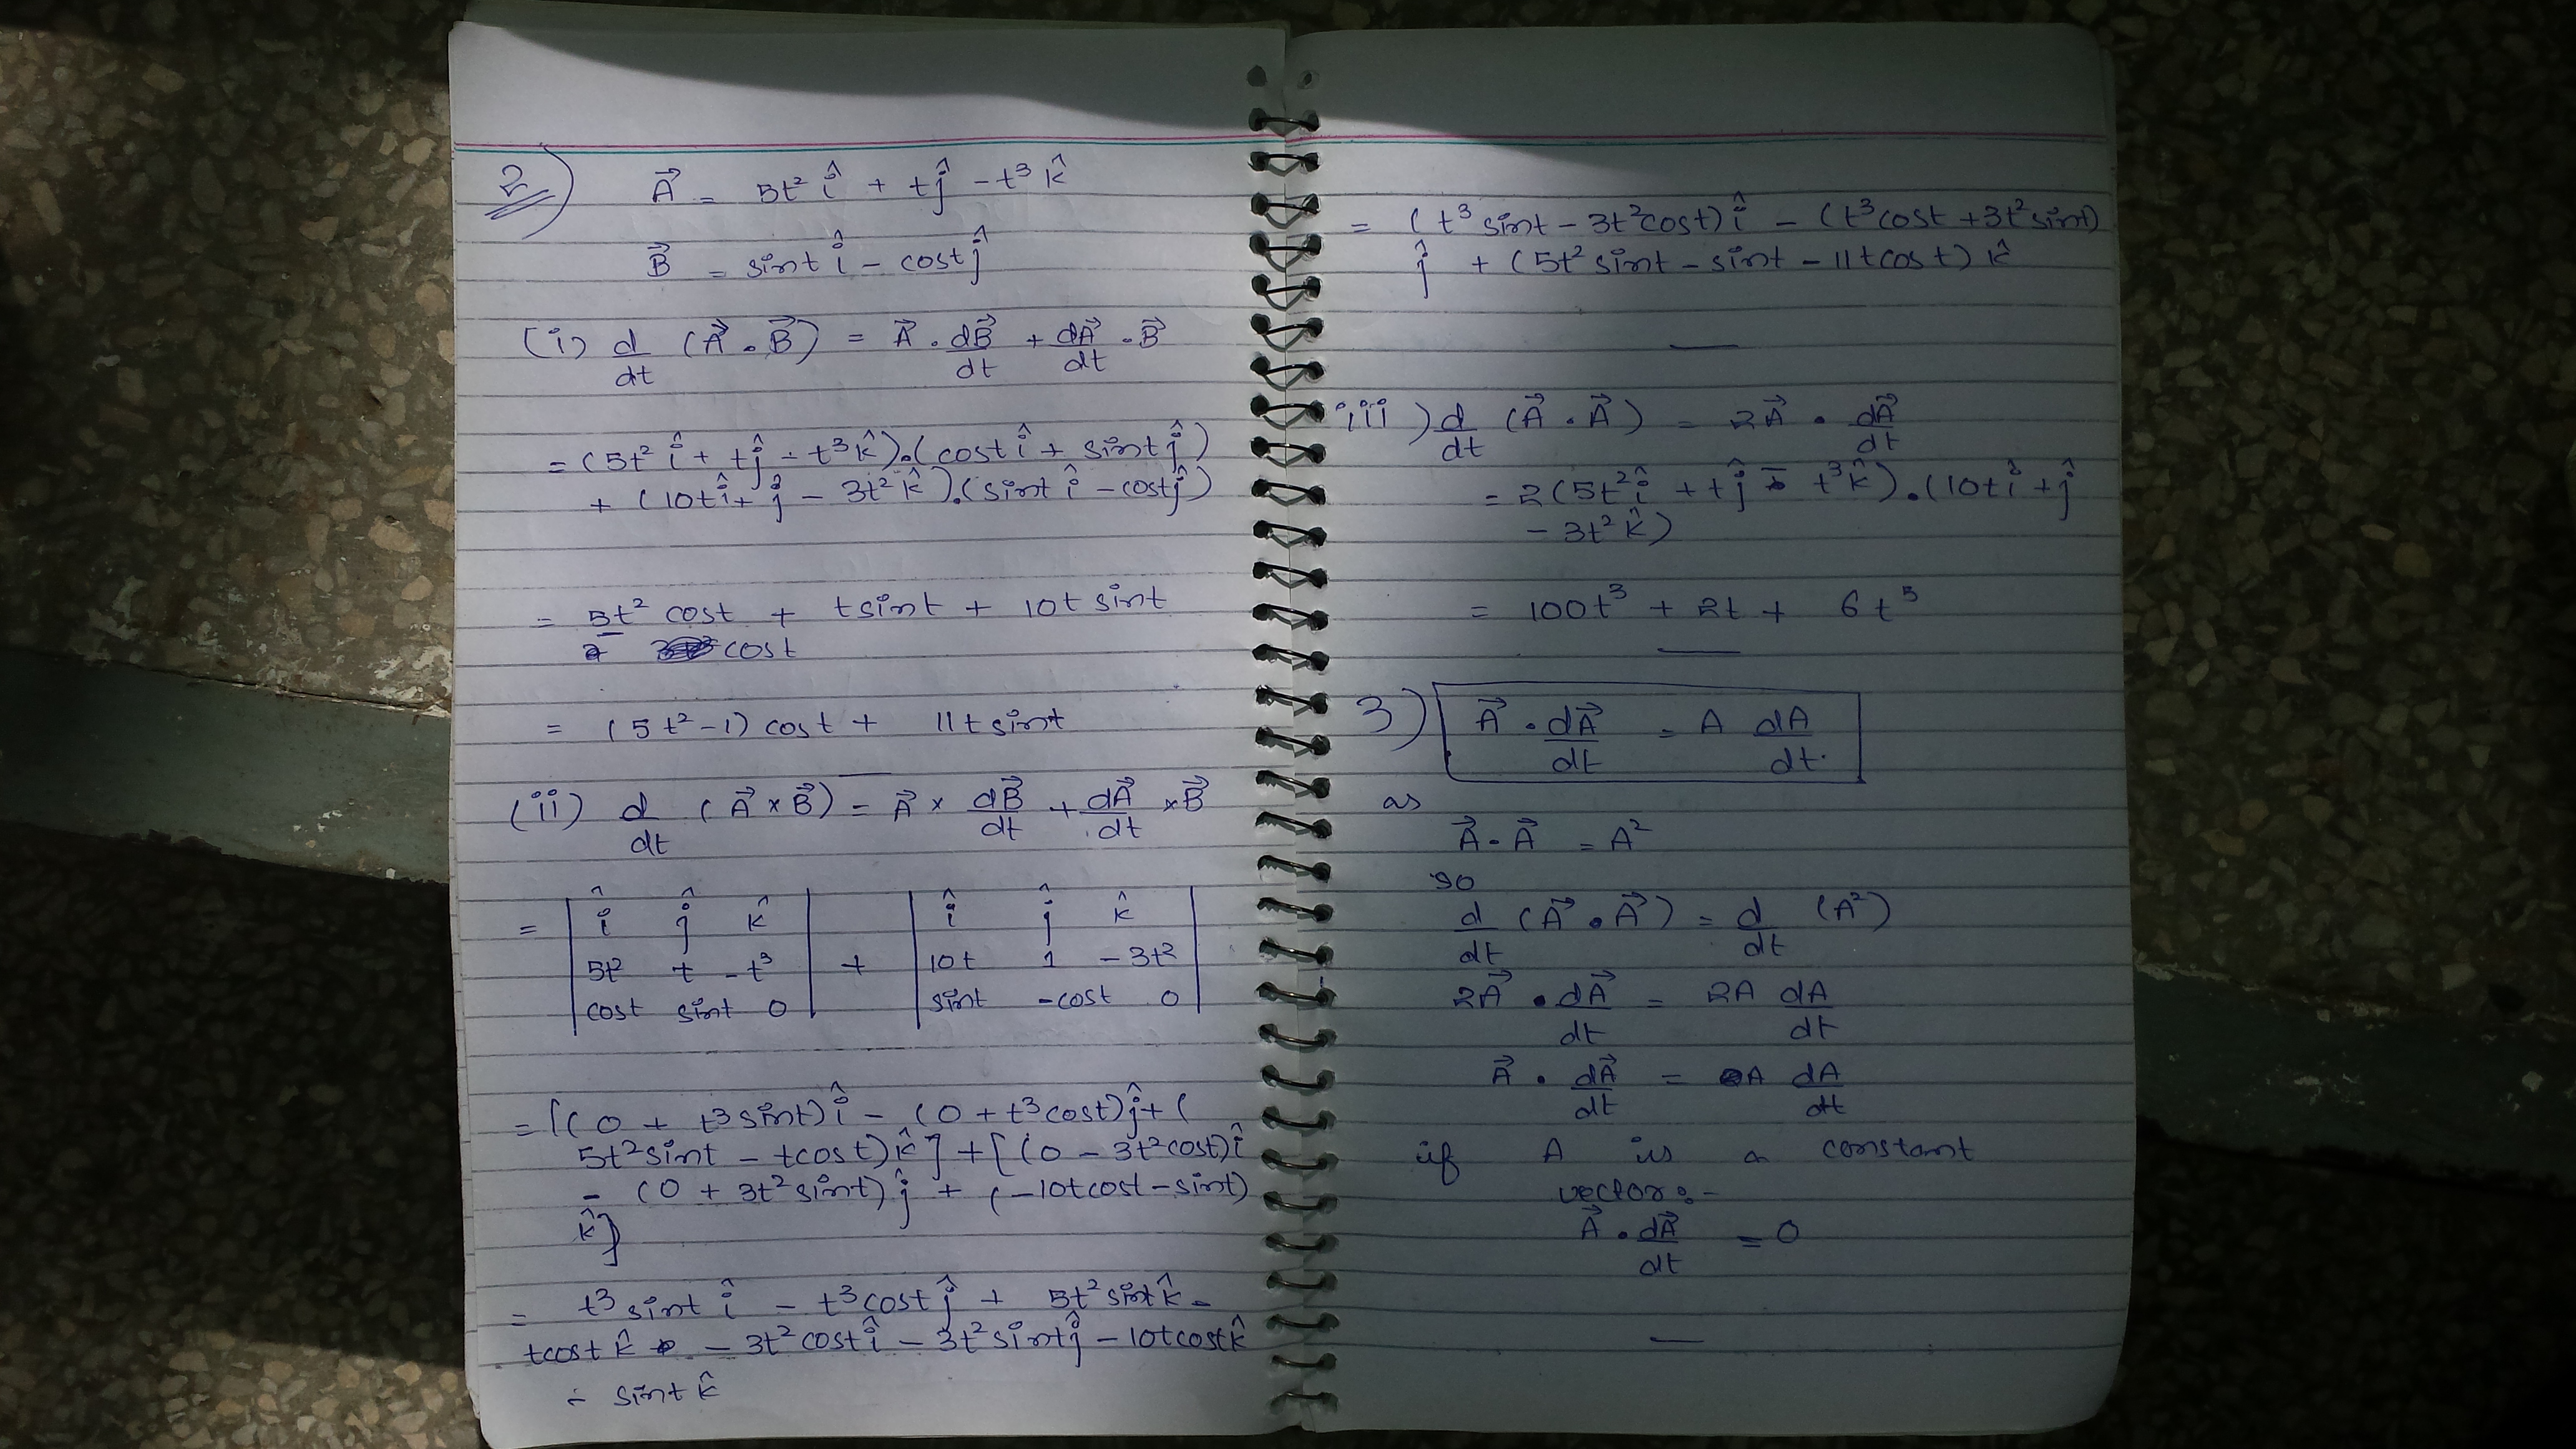 2) A⃗ = 5t² î + tĵ - t³ k̂
B⃗ = sint î - cost ĵ
(i) d/dt (A⃗ . B⃗) = A⃗ . dB⃗/dt + dA⃗/dt . B⃗
= (5t² î + tĵ - t³ k̂).(cost î + sint ĵ)
+ (10t î + ĵ - 3t² k̂).(sint î - cost ĵ)
= 5t² cost + tsint + 10t sint
- cost
= (5t²-1) cost + 11t sint
(ii) d/dt (A⃗ × B⃗) = A⃗ × dB⃗/dt + dA⃗/dt × B⃗
= | î ĵ k̂ | + | î ĵ k̂ |
| 5t² t -t³ | | 10t 1 -3t² |
| cost sint 0 | | sint -cost 0 |
= [(0 + t³ sint) î - (0 + t³ cost) ĵ + (
5t² sint - tcost) k̂ ] + [(0 - 3t² cost) î
- (0 + 3t² sint) ĵ + (-10tcost - sint)
k̂ ]
= t³ sint î - t³ cost ĵ + 5t² sint k̂ -
tcost k̂ - 3t² cost î - 3t² sint ĵ - 10tcost k̂
- sint k̂
= (t³ sint - 3t² cost) î - (t³ cost + 3t² sint)
ĵ + (5t² sint - sint - 11tcost) k̂
iii) d/dt (A⃗ . A⃗) = 2A⃗ . dA⃗/dt
= 2(5t² î + tĵ - t³ k̂).(10t î + ĵ
- 3t² k̂)
= 100t³ + 2t + 6t⁵
3) A⃗ . dA⃗/dt = A dA/dt.
as
A⃗ . A⃗ = A²
so
d/dt (A⃗ . A⃗) = d/dt (A²)
2A⃗ . dA⃗/dt = 2A dA/dt
A⃗ . dA⃗/dt = A dA/dt
if A is a constant
vector:-
A⃗ . dA⃗/dt = 0